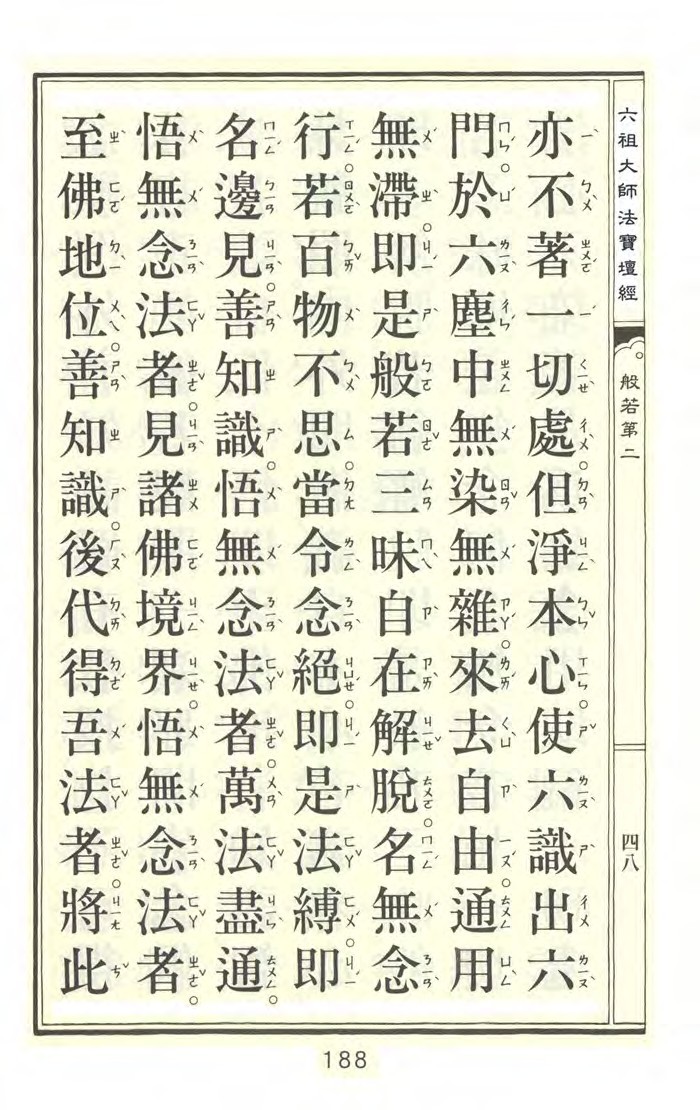 六祖大師法寶壇經
般若第二
四八
亦不著一切處但淨本心使六識出六
門於六塵中無染無雜來去自由通用
無滯即是般若三昧自在解脫名無念
行若百物不思當令念絕即是法縛即
名邊見善知識悟無念法者萬法盡通
悟無念法者見諸佛境界悟無念法者
至佛地位善知識後代得吾法者將此
188